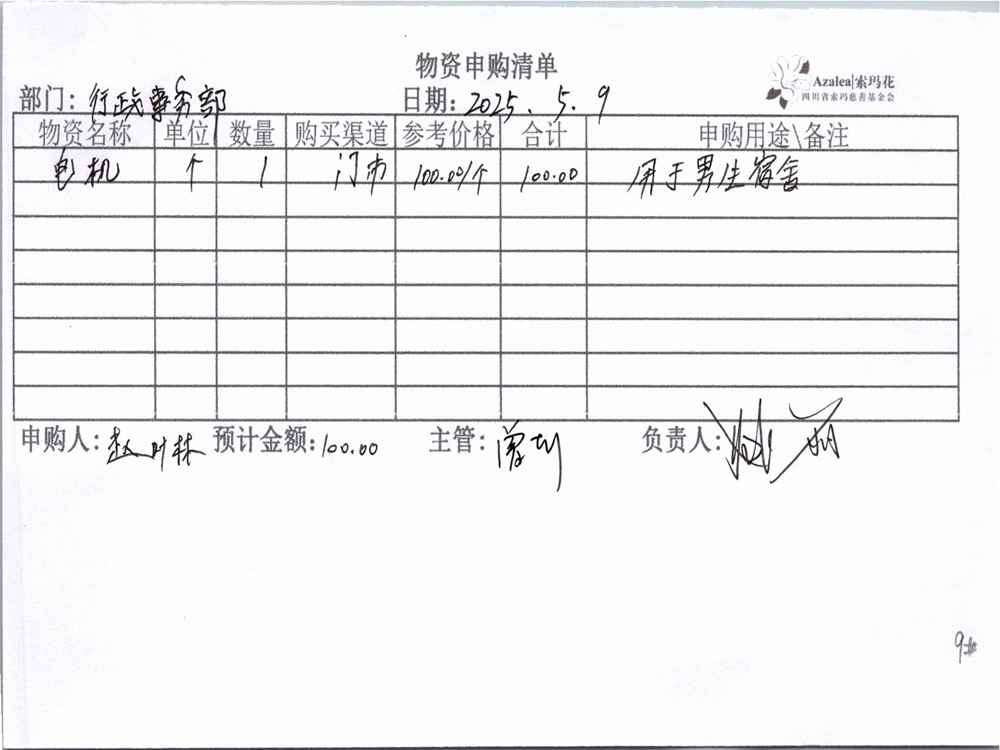 物资申购清单
Azalea|索玛花
四川省索玛慈善基金会
部门：行政事务部 日期：2025.5.9
物资名称 单位 数量 购买渠道 参考价格 合计 申购用途\备注
电机 个 1 门市 100.00/个 100.00 用于男生宿舍
申购人：赵叶林 预计金额：100.00 主管：曾 负责人：
9#